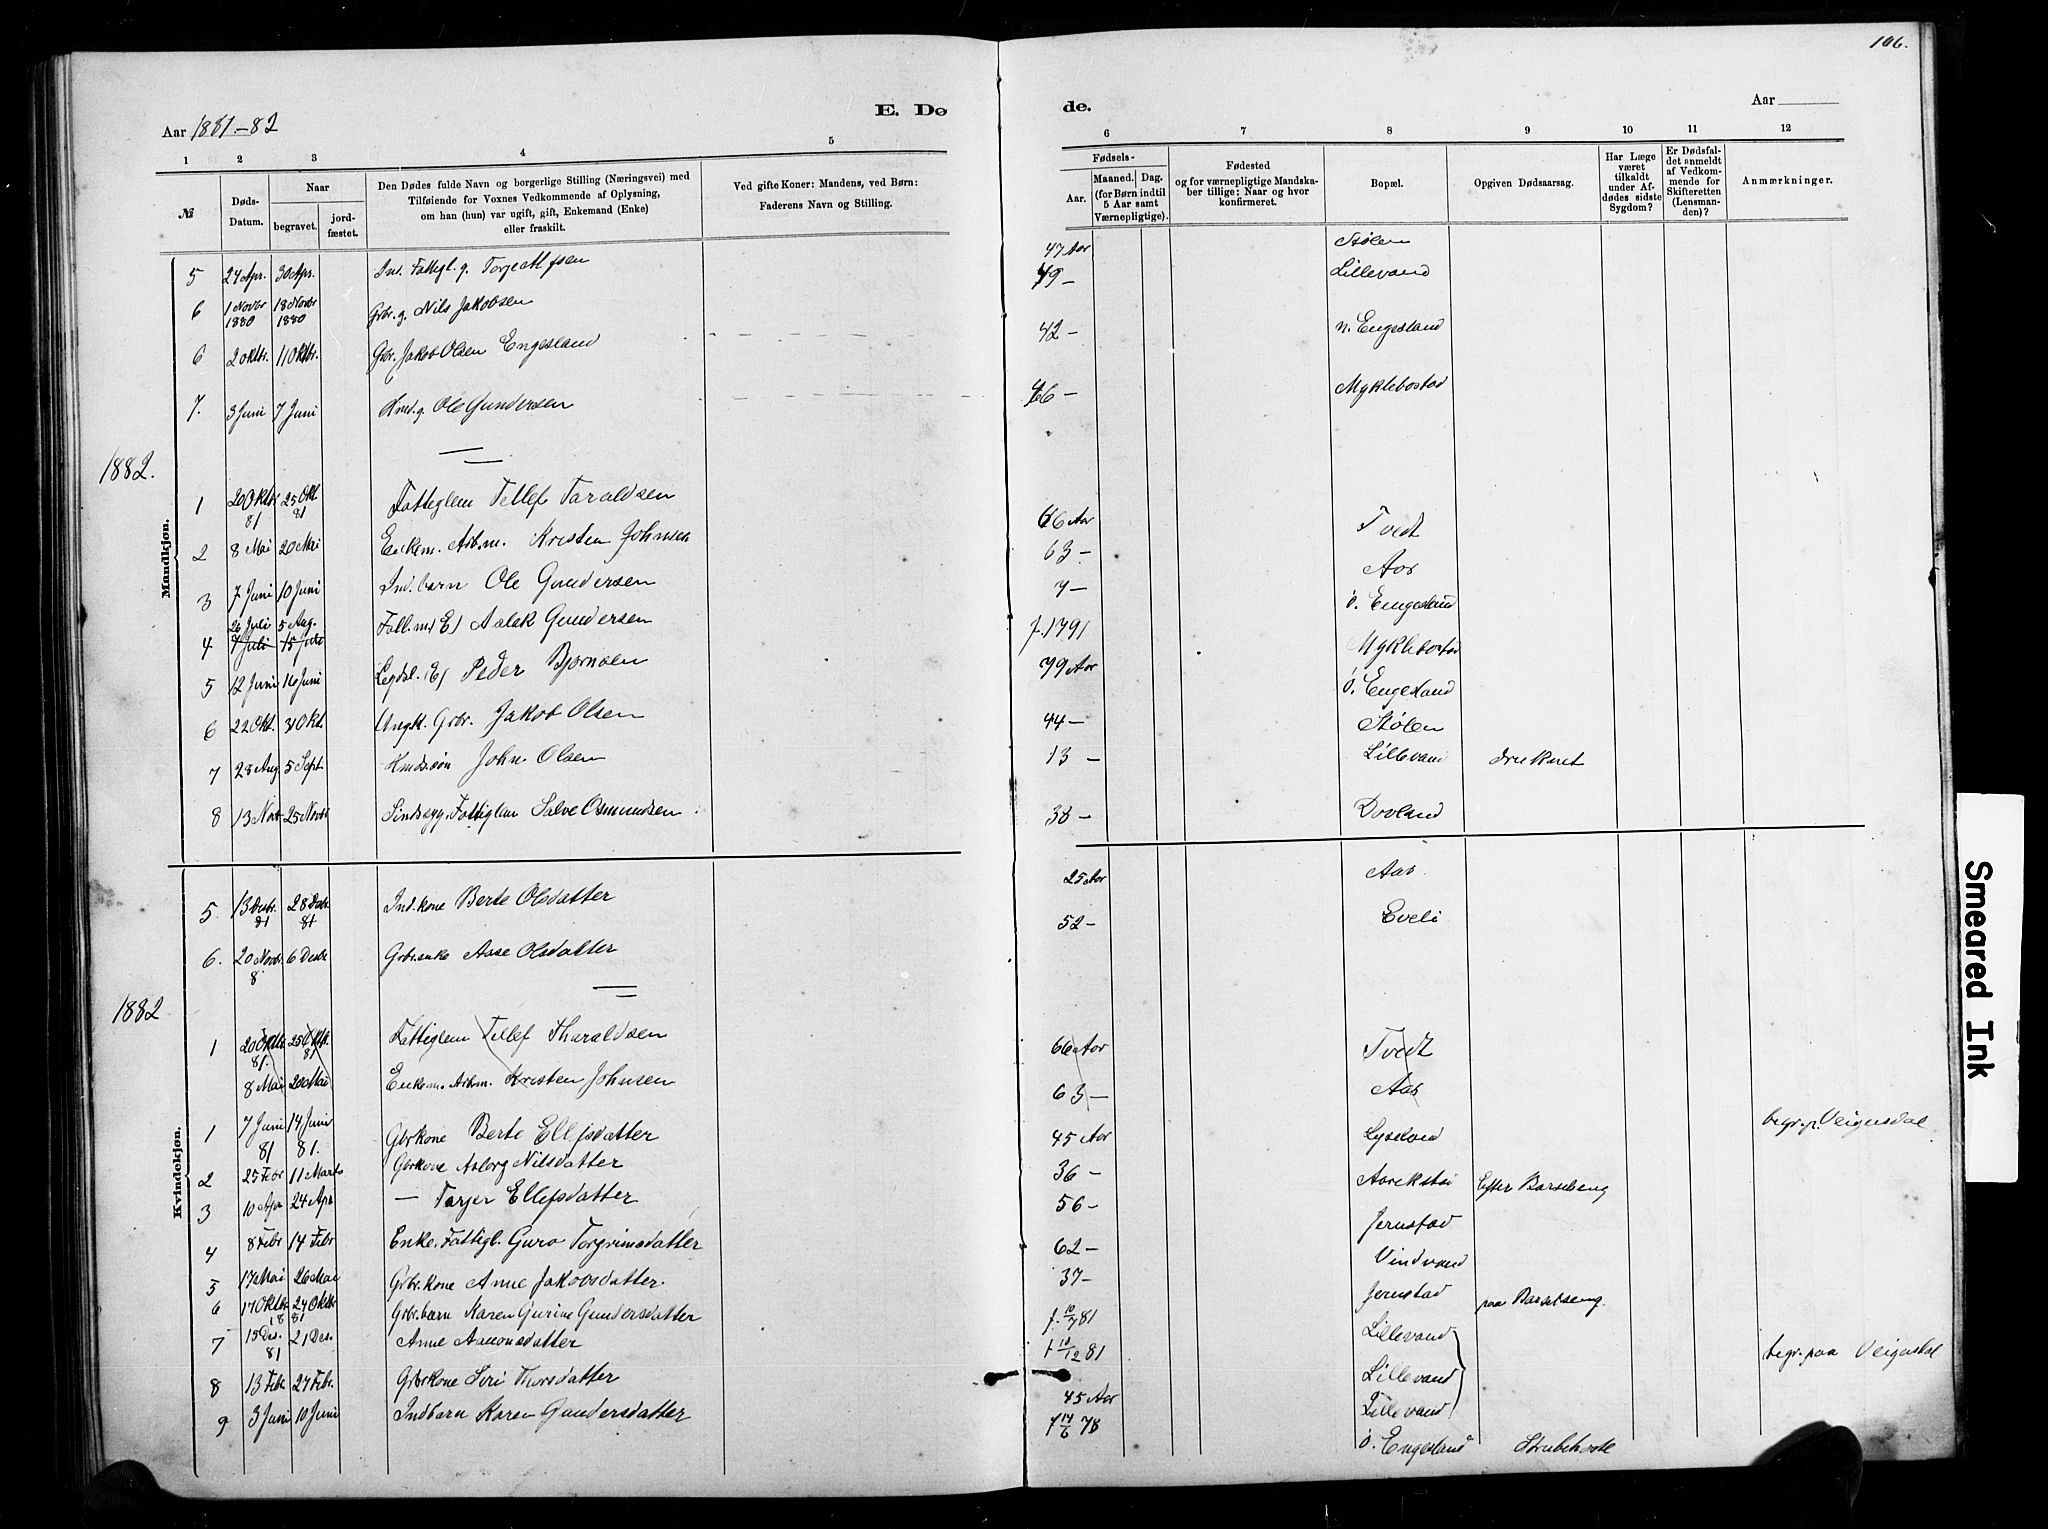 106.
E. Dø
de.
Aar 1881-82
Aar
1
2
3
4
5
6
7
8
9
10
11
12
№
Døds-
Datum.
Naar
begravet.
jord-
fæstet.
Den Dødes fulde Navn og borgerlige Stilling (Næringsvei) med
Tilføiende for Voxnes Vedkommende af Oplysning,
om han (hun) var ugift, gift, Enkemand (Enke)
eller fraskilt.
Ved gifte Koner: Mandens, ved Børn:
Faderens Navn og Stilling.
Fødsels-
Aar.
Maaned. Dag.
(for Børn indtil
5 Aar samt
Værnepligtige).
Fødested
og for værnepligtige Mandska-
ber tillige: Naar og hvor
konfirmeret.
Bopæl.
Opgiven Dødsaarsag.
Har Læge
været
tilkaldt
under Af-
dødes sidste
Sygdom?
Er Dødsfal-
det anmeldt
af Vedkom-
mende for
Skifteretten
(Lensman-
den)?
Anmærkninger.
Mandkjøn.
5 24 Apr. 30 Apr. Ind. Fattigl. g. Torje Alfsen 47 Aar Stølen
6 1 Novbr 1880 18 Novbr 1880 Grbr. g. Nils Jakobsen 49 - Lillevand
6 2 Oktbr. 11 Oktbr. Gbr. Jakob Olsen Engesland 42 - n. Engesland
7. 3 Juni 7 Juni Hmd. g. Ole Gundersen 46 - Myklebostad
1882.
1 20 Oktbr 81 25 Okt. 81 Fattiglem Tellef Taraldsen 66 Aar Tvedt
2 8 Mai 20 Mai Enkem. Arbm. Kristen Johnsen 63 - Aas
3 7 Juni 10 Juni Ind. barn Ole Gundersen 7 - ö. Engesland
4 26 Juli 5 Aug. Aslak Gundersen f. 1791 Myklebostad
7 Juli 15 Juli
5 12 Juni 16 Juni Legdsl. E) Peder Bjørnsen 79 Aar ö. Engesland
6 22 Okt. 30 Okt. Ungk. Grbr. Jakob Olsen 44 - Stølen
7 28 Aug. 5 Sept Hmdssøn John Olsen 13 - Lillevand druknet
8 13 Novbr 25 Novbr Sindssyg. Fattiglem Salve Osmundsen 38 - Dovland
Kvindekjøn.
5. 13 Desbr. 81 28 Desbr. 81 Ind. kone Berte Olsdatter 25 Aar Aas
6. 20 Novbr. 8 6 Desbr Grbr. enke Aase Olsdatter 52 - Eveli
1882
1 20 Oktbr. 81. 25 Oktbr. 81 Fattiglem Tellef Tharaldsen 66 Aar Tvedt
8 Mai 20 Mai Enkem. Arbm. Kristen Johnsen 63 - Aas
1 7 Juni 81 14 Juni 81. Gbrkone Berte Ellefsdatter 45 Aar Lyselvd begr. p. Veigusdal
2 25 Febr 11 Marts Gbrkone Asborg Nilsdatter 36 - Aarikstøi Efter Barselseng
3 10 Apr 24 Apr - Torjer Ellefsdatter 56 - Jernstad
4 8 Febr 14 Febr Enke. Fattigl. Guro Torgrimsdatter 62 - Vindvand
5 17 Mai 26 Mai Grbr. kone Anne Jakobsdatter. 37 - Jernstad paa Barselseng.
6 17 Oktbr 81 24 Oktbr 81 Grbr. barn Karen Gurine Gundersdatter f. 10/7 81 Lillevand
7 15 Des. 81 21 Des. Anne Aanonsdatter f 10/12 81 Lillevand begr. paa Veigusdal
8 13 Febr 27 Febr. Gbrkone Siri Thorsdatter 45 Aar Lillevand
9 3 Juni 10 Juni Indbarn Karen Gundersdatter f 14/6 78 ö. Engesland Strubehoste
Smeared Ink